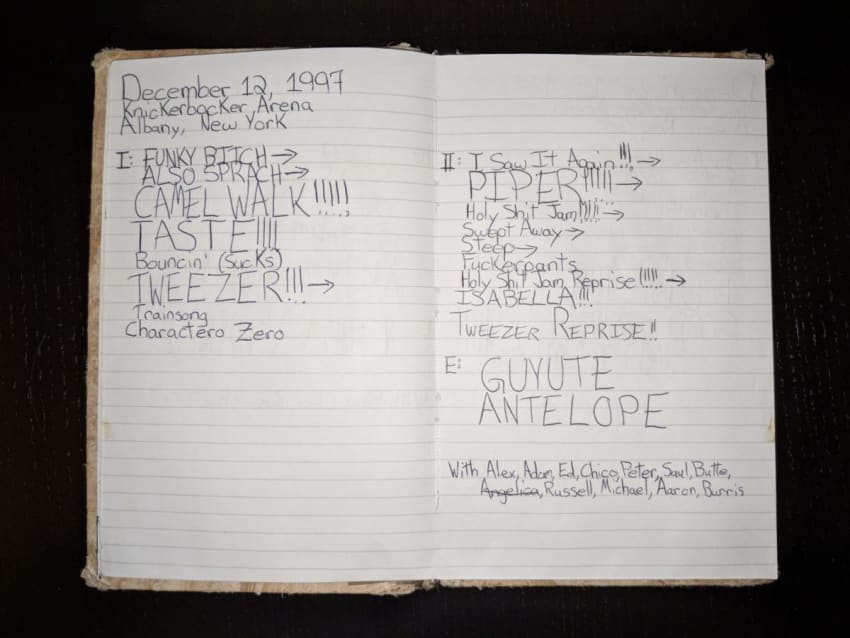 December 12, 1997
Knickerbocker Arena
Albany, New York
I: FUNKY BITCH→
ALSO SPRACH→
CAMEL WALK!!!!!
TASTE!!!!
Bouncin' (Sucks)
TWEEZER!!!→
Trainsong
Charactero Zero
II: I Saw It Again!!!→
PIPER!!!!!→
Holy Shit Jam!!!!!→
Swept Away→
Steep→
Fuckerpants
Holy Shit Jam Reprise!!!!!→
ISABELLA!!!
TWEEZER REPRISE!!
E: GUYUTE
ANTELOPE
With Alex, Adam, Ed, Chico, Peter, Saul, Butte,
Angelica, Russell, Michael, Aaron, Burris